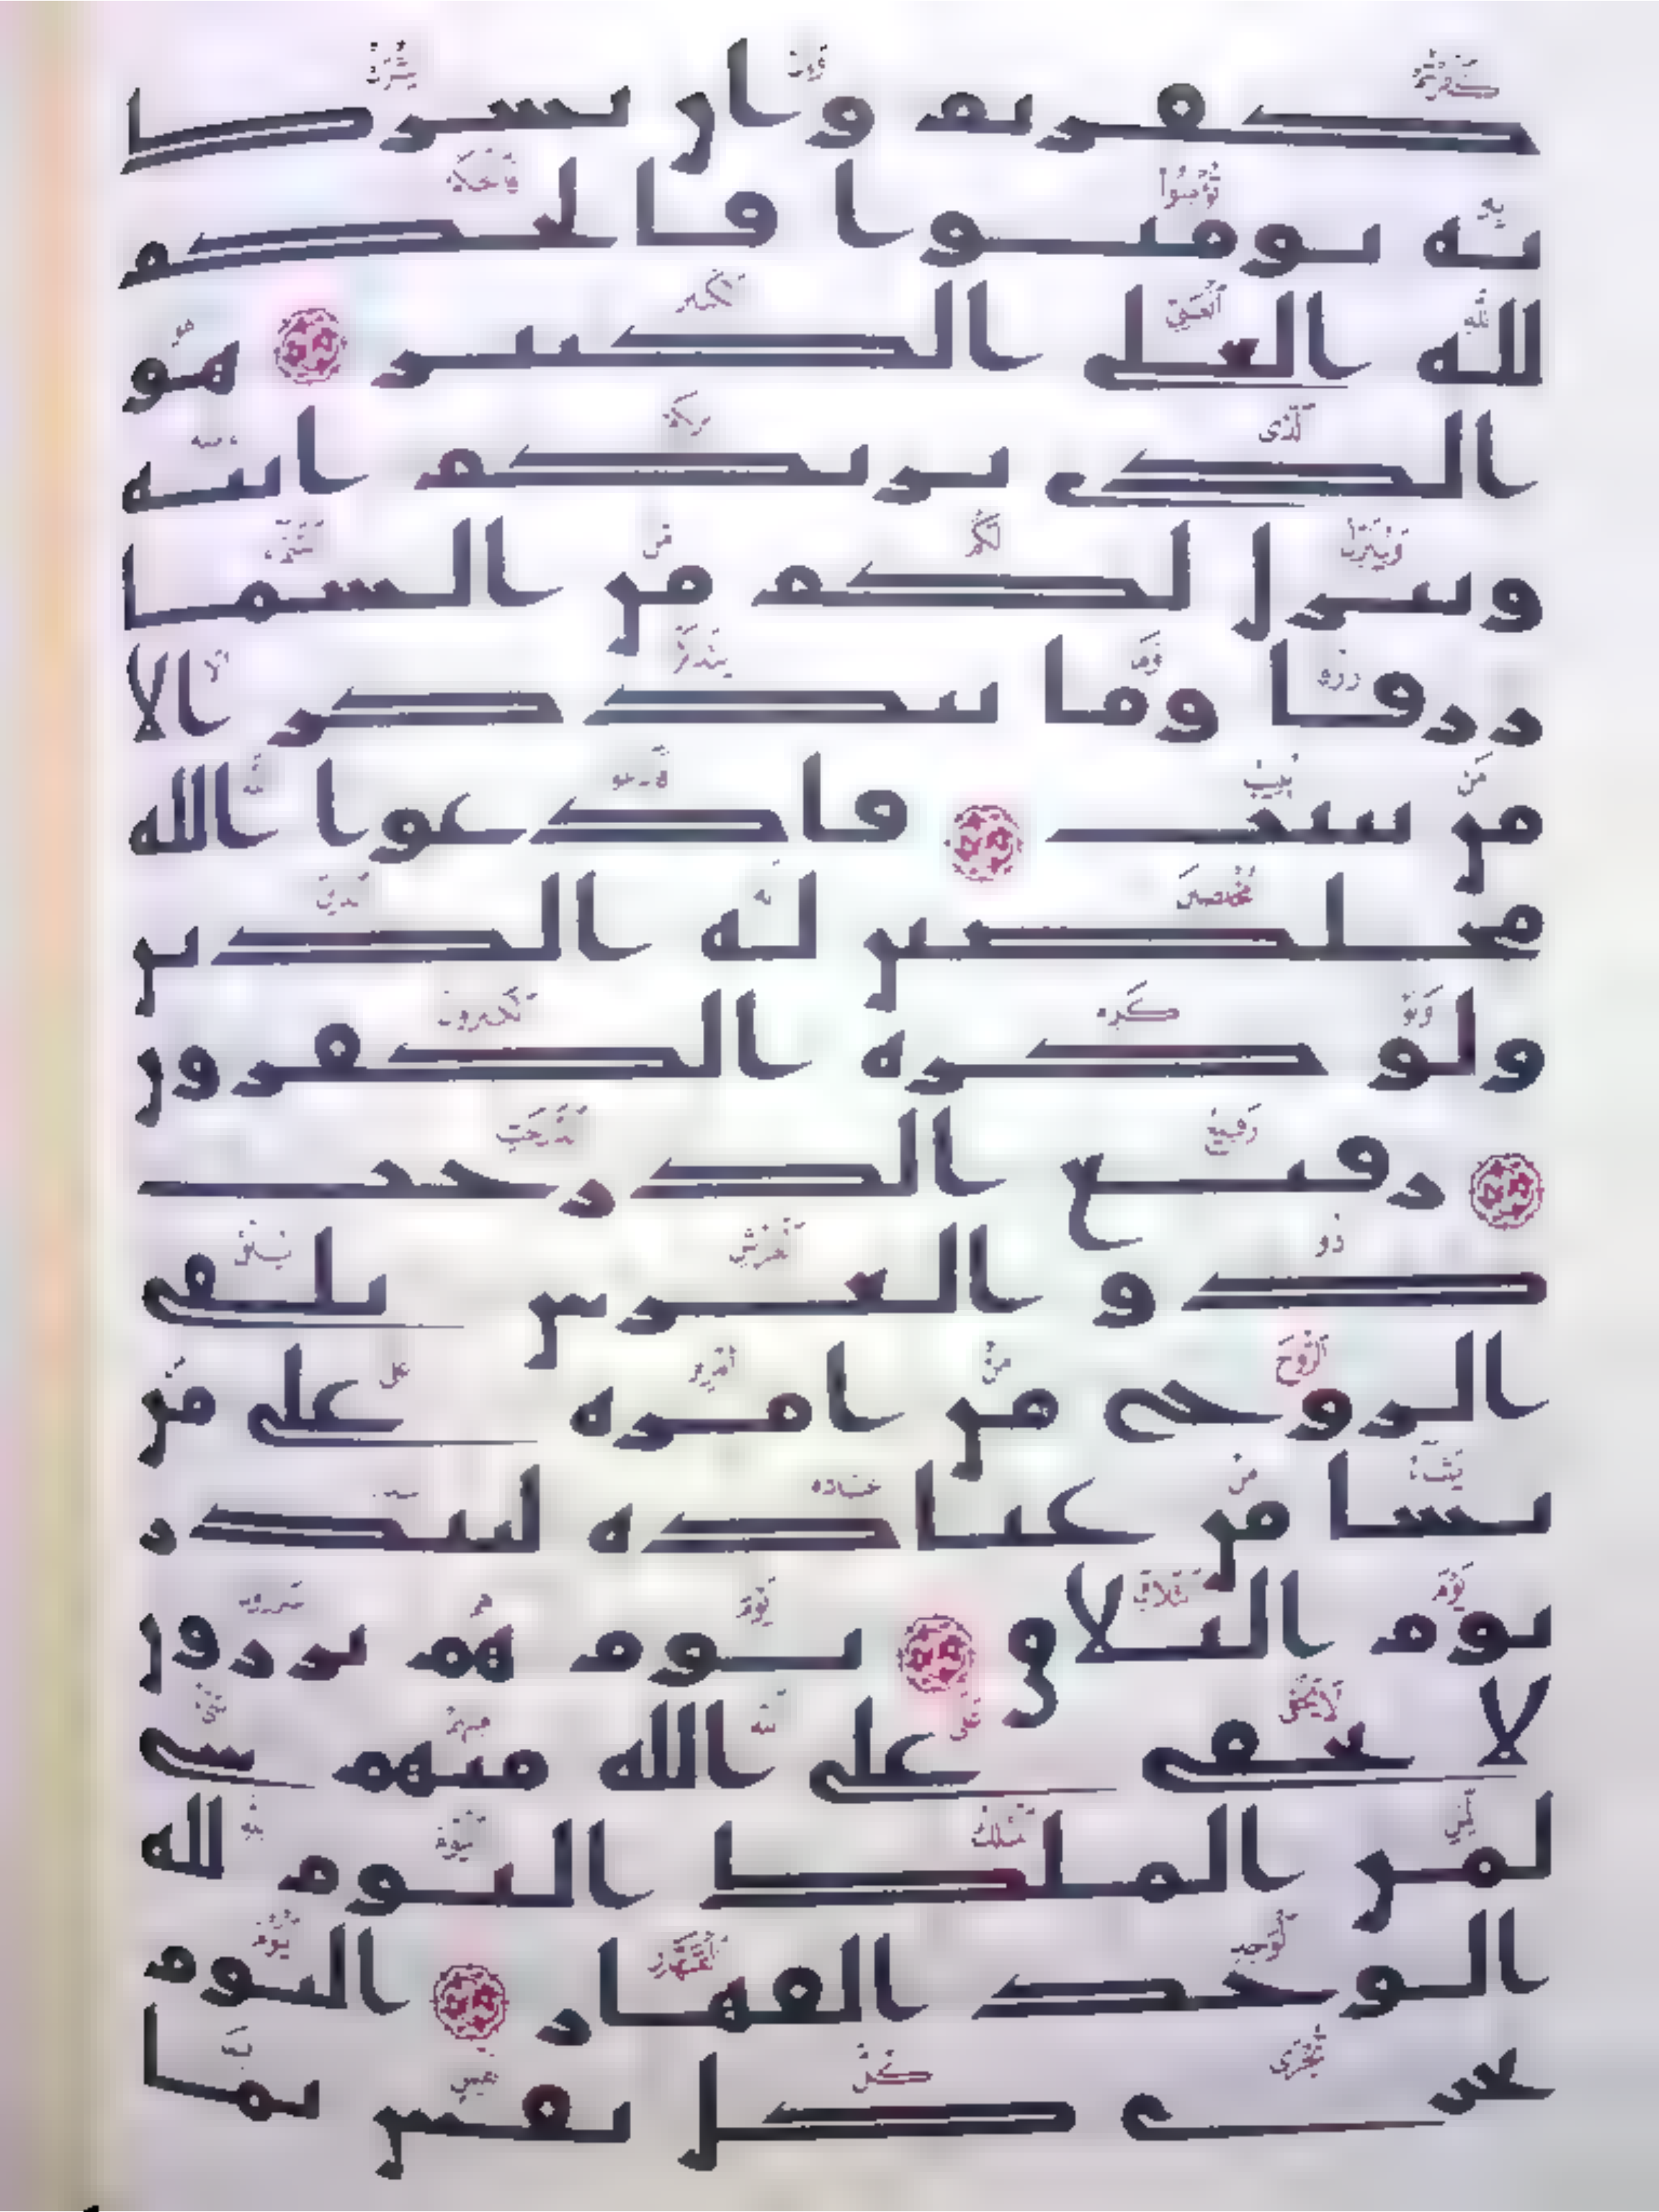 كفرتم وان يشرك
به تومنوا فالحكم
لله العلى الكبير ۝ هو
الذى يريكم ايته
وينزل لكم من السما
رزقا وما يتذكر الا
من ينيب ۝ فادعوا الله
مخلصين له الدين
ولو كره الكفرون
۝ رفيع الدرجت
ذو العرش يلقى
الروح من امره على من
يشا من عباده لينذر
يوم التلاق ۝ يوم هم برزون
لا يخفى على الله منهم شى
لمن الملك اليوم لله
الوحد القهار ۝ اليوم
تجزى كل نفس بما